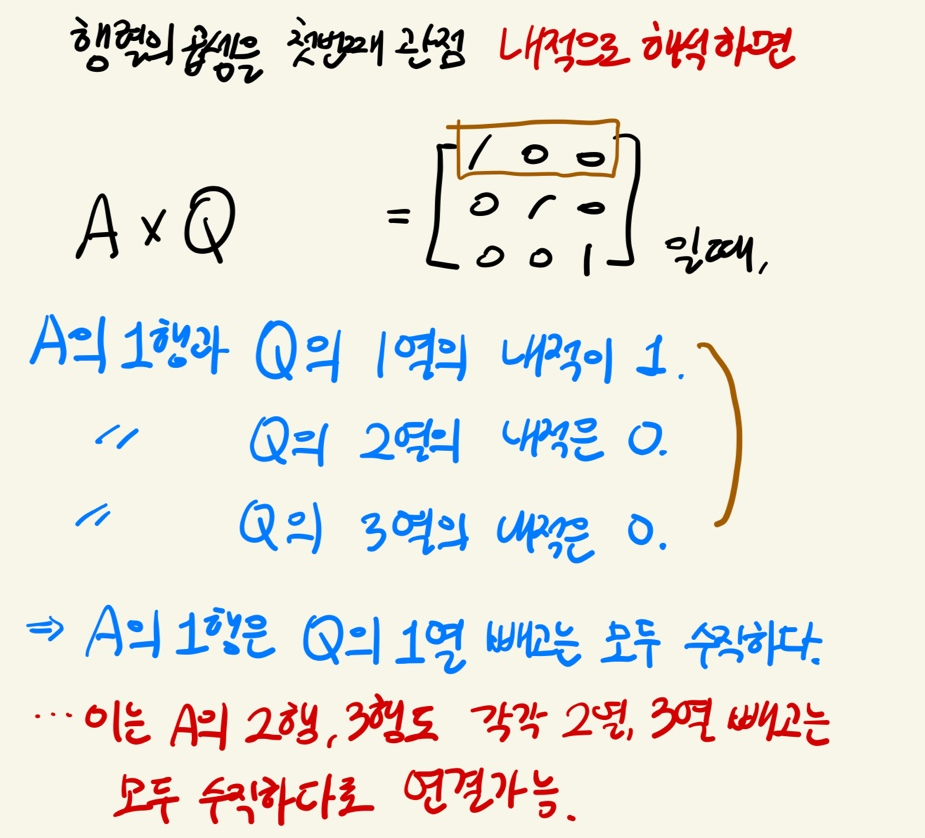 행렬의 곱셈은 첫번째 관점 내적으로 해석하면
A × Q = [1 0 0
0 1 0
0 0 1] 일때,
A의 1행과 Q의 1열의 내적이 1.
〃 Q의 2열의 내적은 0.
〃 Q의 3열의 내적은 0.
⇒ A의 1행은 Q의 1열 빼고는 모두 수직하다.
… 이는 A의 2행, 3행도 각각 2열, 3열 빼고는
모두 수직하다로 연결가능.